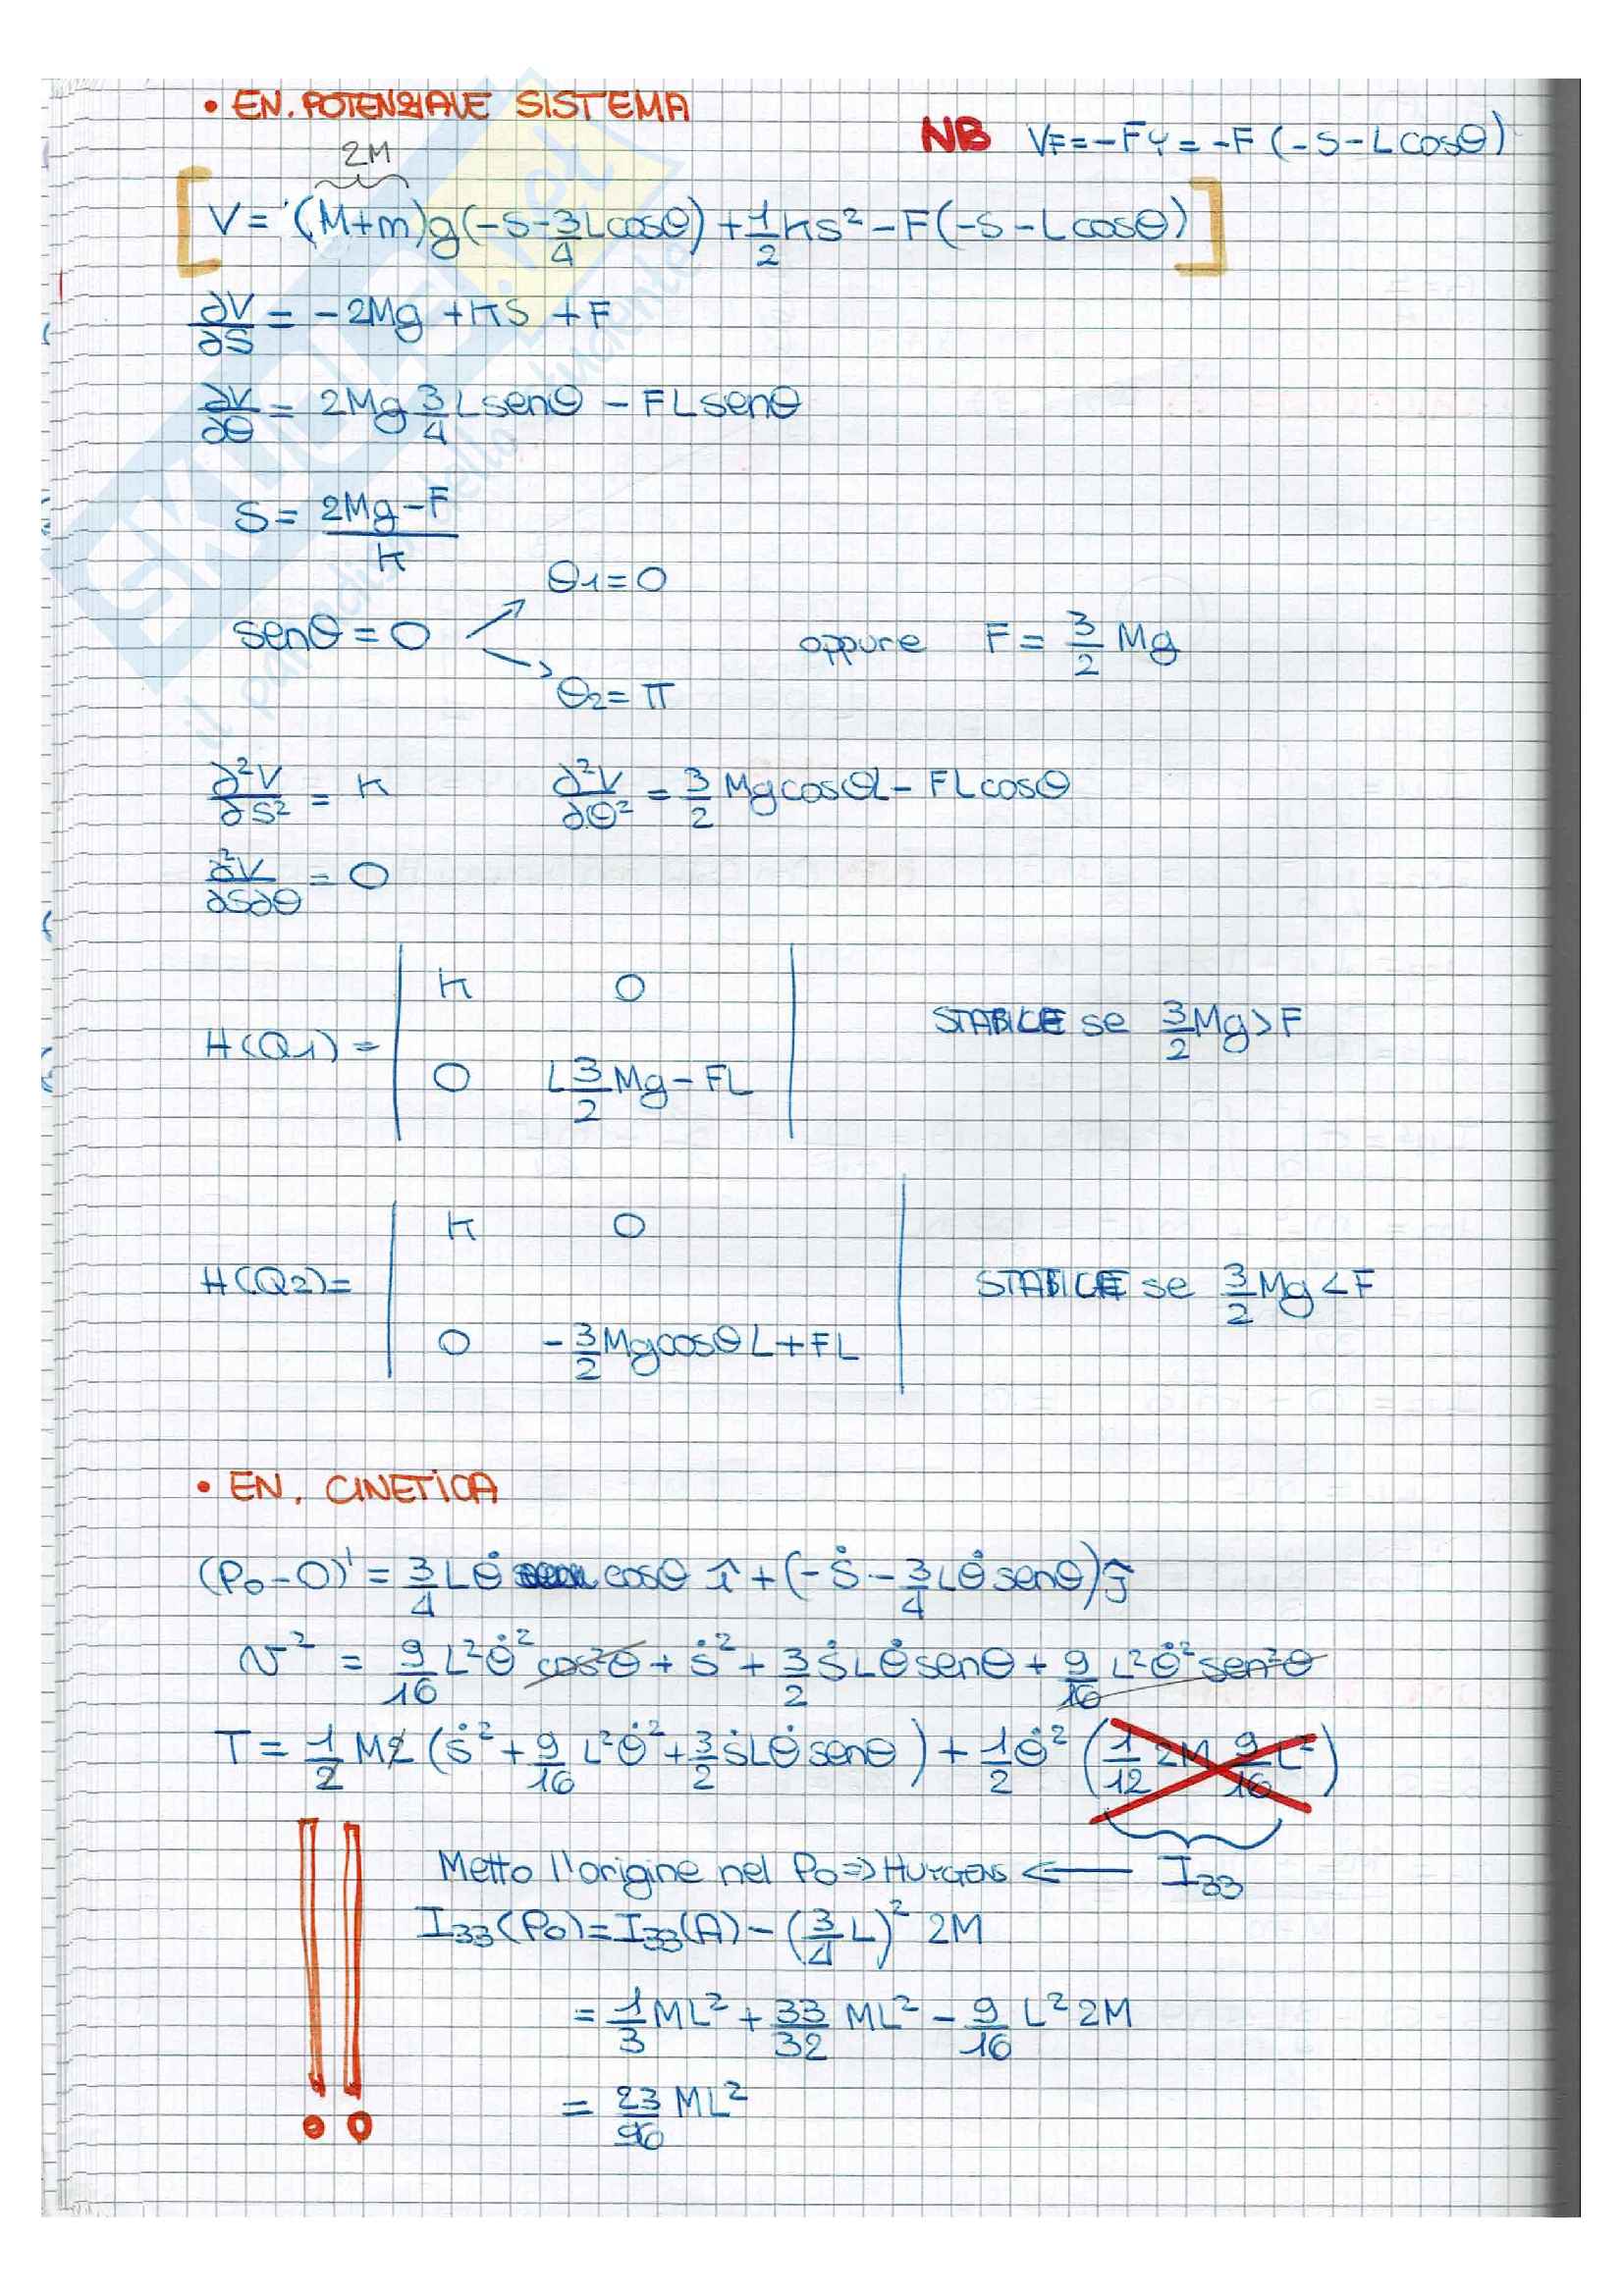 • EN. POTENZIALE SISTEMA
NB V_F = -Fy = -F(-S - L cosθ)
2M
[V = (M+m)g(-S - 3/4 L cosθ) + 1/2 kS² - F(-S - L cosθ)]
∂V/∂S = -2Mg + kS + F
∂V/∂θ = 2Mg 3/4 L senθ - FL senθ
S = (2Mg - F)/k
θ1 = 0
senθ = 0 oppure F = 3/2 Mg
θ2 = π
∂²V/∂S² = k ∂²V/∂θ² = 3/2 Mg cosθ L - FL cosθ
∂²V/∂S∂θ = 0
k 0
H(Q1) = STABILE se 3/2 Mg > F
0 L 3/2 Mg - FL
k 0
H(Q2) = STABILE se 3/2 Mg < F
0 -3/2 Mg cosθ L + FL
• EN. CINETICA
(P0 - O)' = 3/4 Lθ̇ cosθ î + (-Ṡ - 3/4 Lθ̇ senθ) ĵ
v² = 9/16 L²θ̇² cos²θ + ṡ² + 3/2 ṡLθ̇ senθ + 9/16 L²θ̇² sen²θ
T = 1/2 M2 (ṡ² + 9/16 L²θ̇² + 3/2 ṡLθ̇ senθ) + 1/2 θ̇² (1/12 2M 9/16 L²)
Metto l'origine nel P0 => HUYGENS ← I33
I33(P0) = I33(A) - (3/4 L)² 2M
= 1/3 ML² + 33/32 ML² - 9/16 L² 2M
= 23/96 ML²
!!
SKUOLA.net